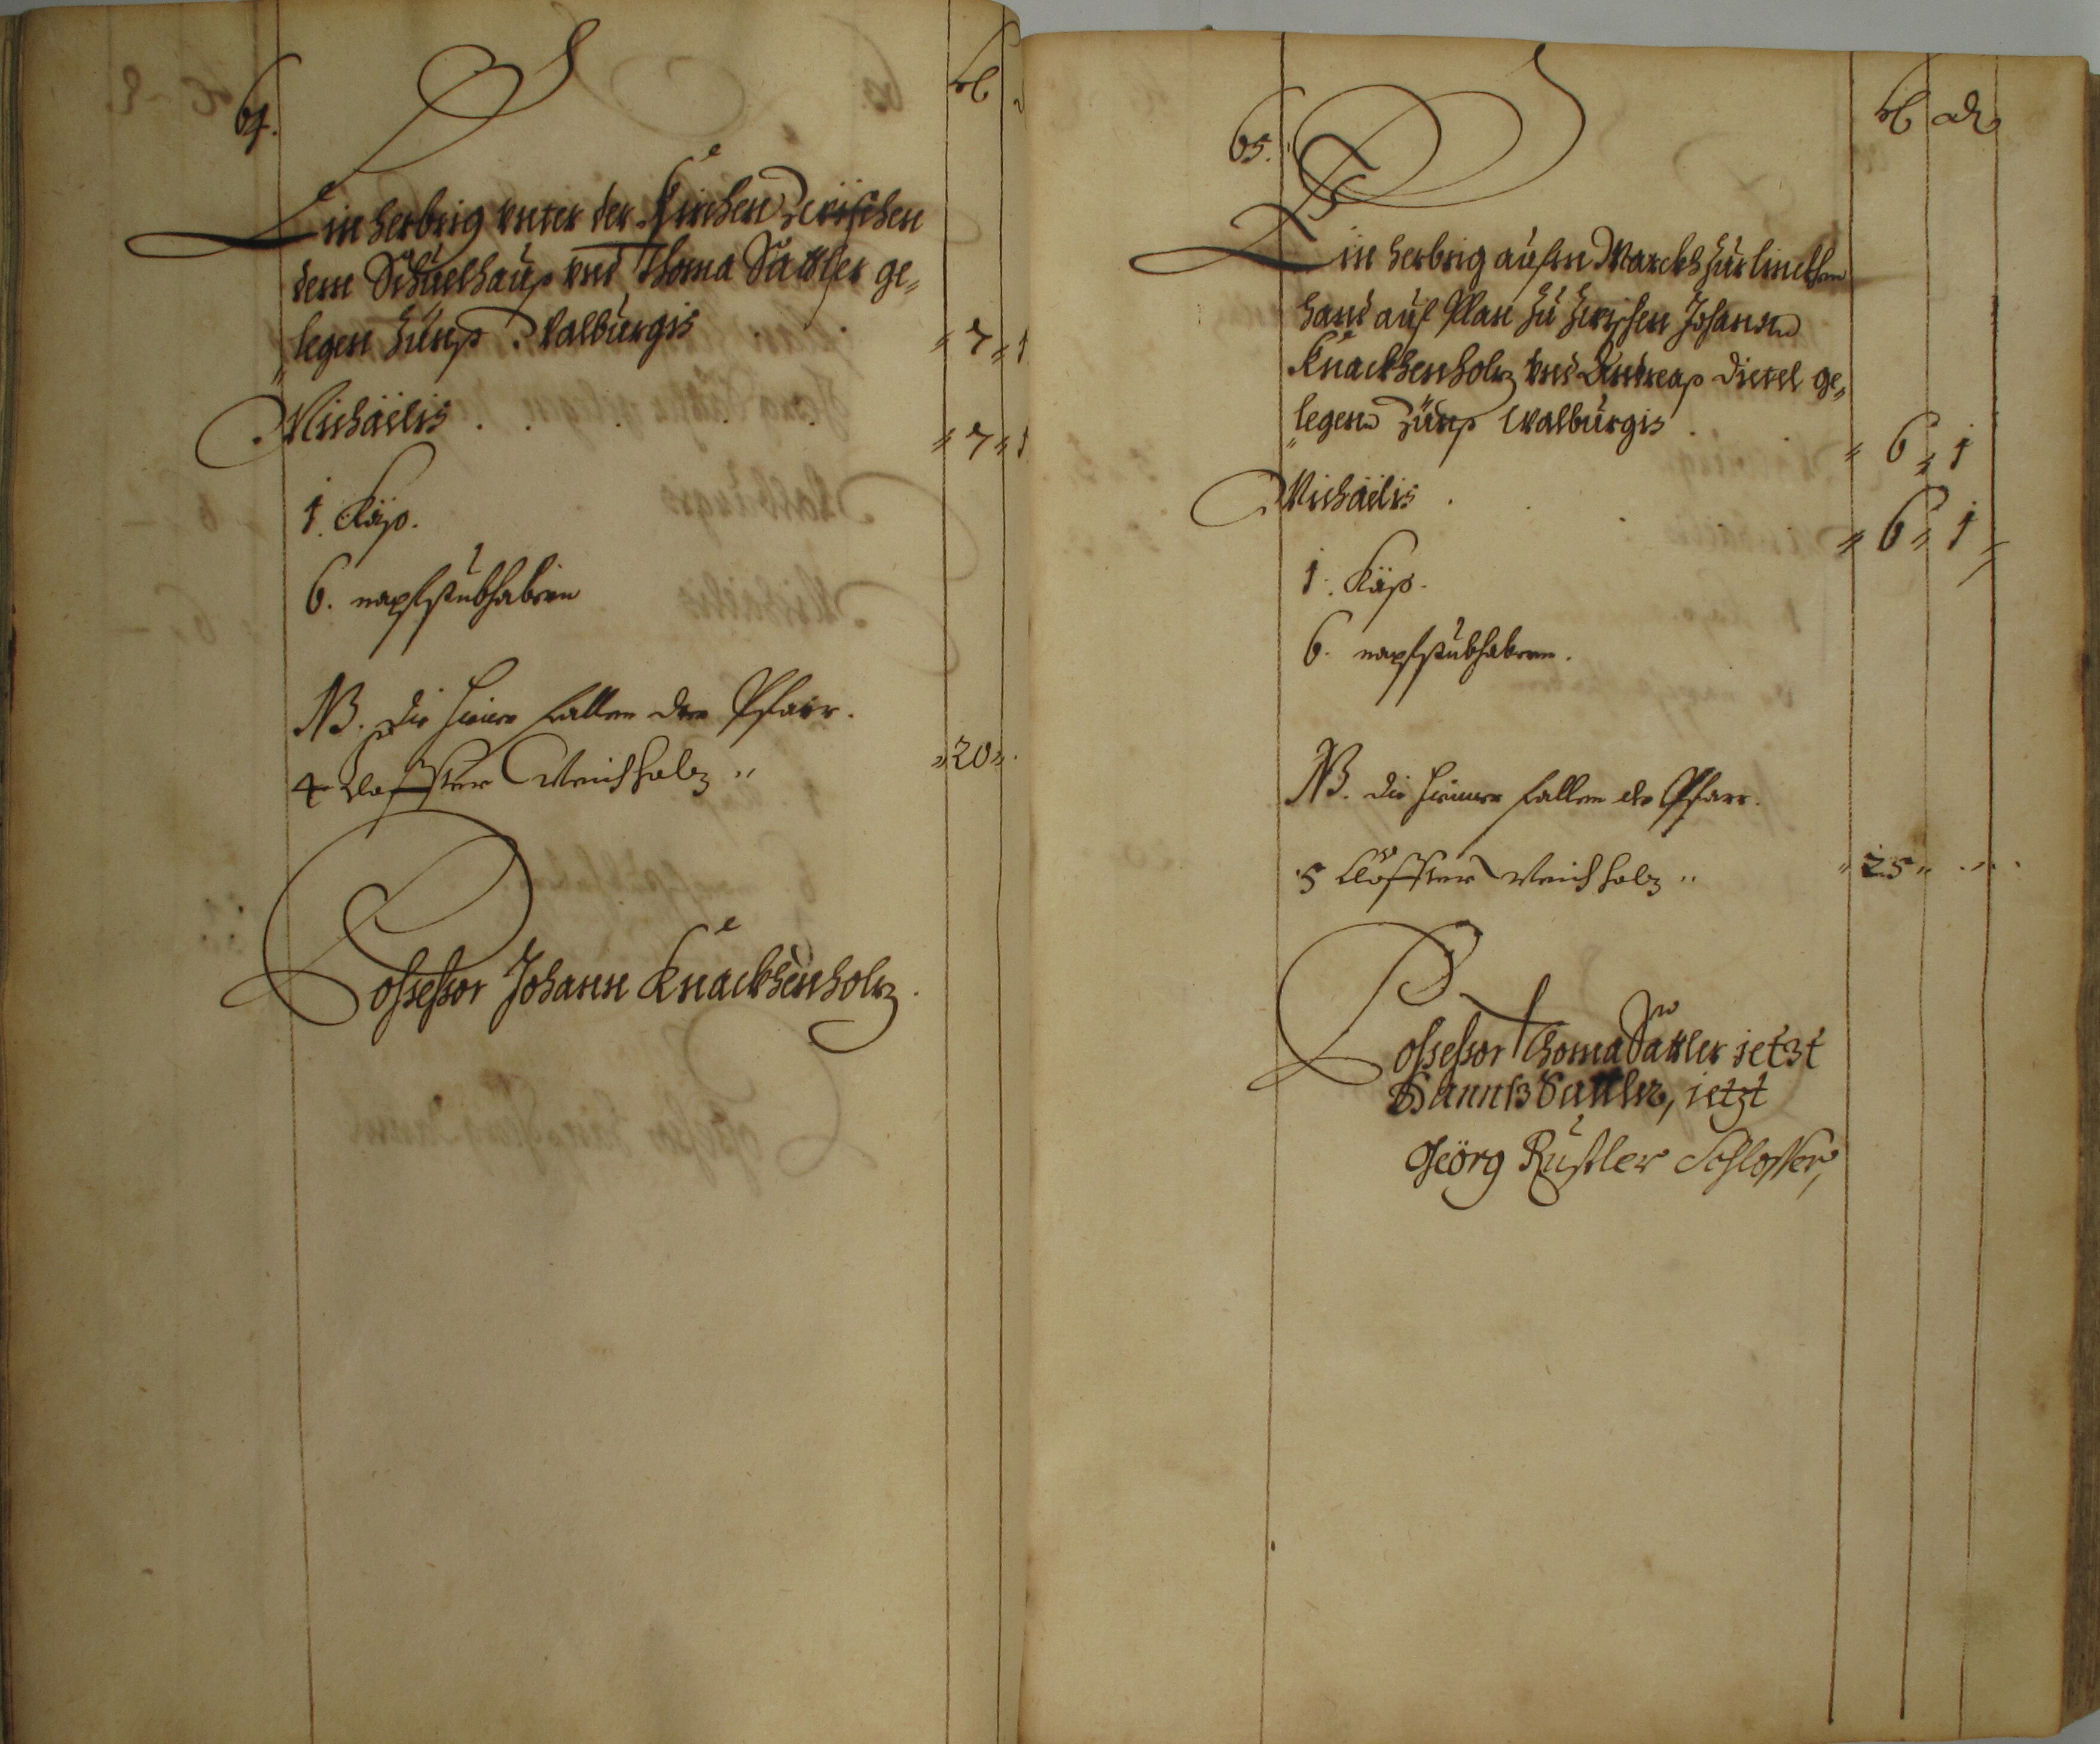 64.
kr
Ein Herbrig vnter der Kirchen Zwischen
dem Schuelhauß vnd Thoma Sattler ge„
legen Zünß Walburgis . . „ 7 „ 1
Michaëlis . . . . . „ 7 „ 1
1. Käß.
6. napfstübhabern
NB. die hiner fallen der Pfarr.
4 Claffter Weichholz „ „ 20 „ .
Possessor Johann Knackhenholz.
65.
kr
Ein Herbrig aufm Marckh Zur linckhen
hand auf Plan Zu Zwischen Johann
Knackhenholz vnd Andreaß Dietel ge„
legen Zünß Walburgis . „ 6 „ 1
Michaëlis . . . „ 6 „ 1
1. Käß.
6. napfstübhabern.
NB. die hiener fallen der Pfarr.
5 Claffter Weichholz „ „ 25 „
Possessor Thoma Sattler ietzt
Hannß Sattler, ietzt
Geörg Rustler Schlosser,